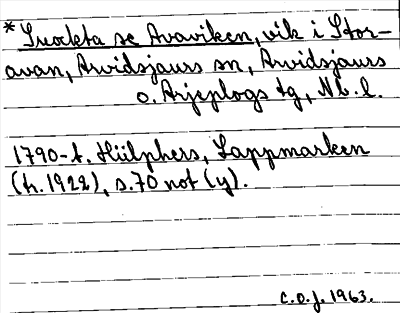 * Suockta se Avaviken, vik i Stor-
avan, Arvidsjaurs sn, Arvidsjaurs
o. Arjeplogs tg, Nb. l.
1790-t. Hülphers, Lappmarken
(tr. 1922), s. 70 not (y).
C.O.J. 1963.